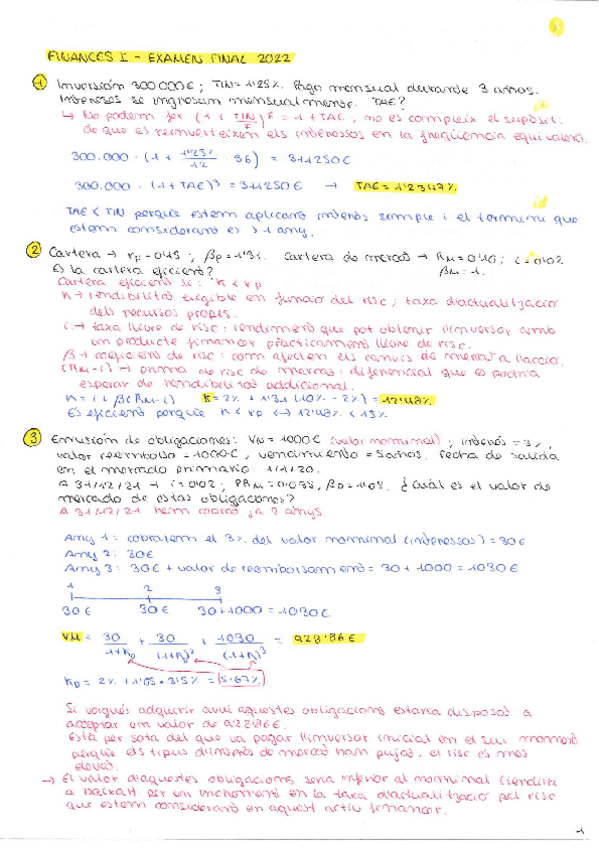 FINANCES I - EXAMEN FINAL 2022
1 Inversión 300.000€; TIN=1'25%. Pago mensual durante 3 años.
Intereses se ingresan mensualmente. TAE?
↳ No podem fer (1 + TIN/F)^F = 1+TAE, no es compleix el supòsit
de que es reinverteixen els interessos en la freqüència equivalent.
300.000 · (1 + 1'25%/12 · 36) = 311250€
300.000 · (1+TAE)³ = 311250€ → TAE = 1'2347%
TAE < TIN perquè estem aplicant interès simple i el termini que
estem considerant es > 1 any.
2 Cartera → rp = 0'15; βp = 1'31. Cartera de mercado → RM = 0'10; i = 0'02
βM = 1.
Es la cartera eficient?
Cartera eficient si: K < rp
K → rendibilitat exigible en funció del risc; taxa d'actualització
dels recursos propis.
i → taxa lliure de risc: rendiment que pot obtenir l'inversor amb
un producte financer pràcticament lliure de risc.
β → coeficient de risc: com afecten els canvis de mercat a l'acció.
(RM-i) → prima de risc de mercat: diferencial que es podria
esperar de rendibilitat addicional.
K = i + β(RM-i) K = 2% + 1'31 (10% - 2%) = 12'48%
Es eficient perquè K < rp ↔ 12'48% < 15%
3 Emisión de obligaciones: VN = 1000€ (valor nominal); interés = 3%,
valor reembolso = 1000€, vencimiento = 5 años. Fecha de salida
en el mercado primario: 1/1/20.
A 31/12/21 → i = 0'02; PRM = 0'035, βD = 1'05. ¿Cuál es el valor de
mercado de estas obligaciones?
A 31/12/21 hem cobrat ja 2 anys
Any 1: cobrarem el 3% del valor nominal (interessos) = 30€
Any 2: 30€
Any 3: 30€ + valor de reemborsament = 30 + 1000 = 1030€
1 2 3
30€ 30€ 30+1000 = 1030€
VM = 30/(1+KD) + 30/(1+KD)² + 1030/(1+KD)³ = 928'86€
KD = 2% + 1'05 · 3'5% = 5'67%
Si volgués adquirir avui aquestes obligacions estaria disposat a
acceptar un valor de 928'86€.
Està per sota del que va pagar l'inversor inicial en el seu moment
perquè els tipus d'interès de mercat han pujat, el risc es més
elevat.
→ El valor d'aquestes obligacions seria inferior al nominal (tendiria
a baixar) per un increment en la taxa d'actualització pel risc
que estem considerant en aquest actiu financer.
1